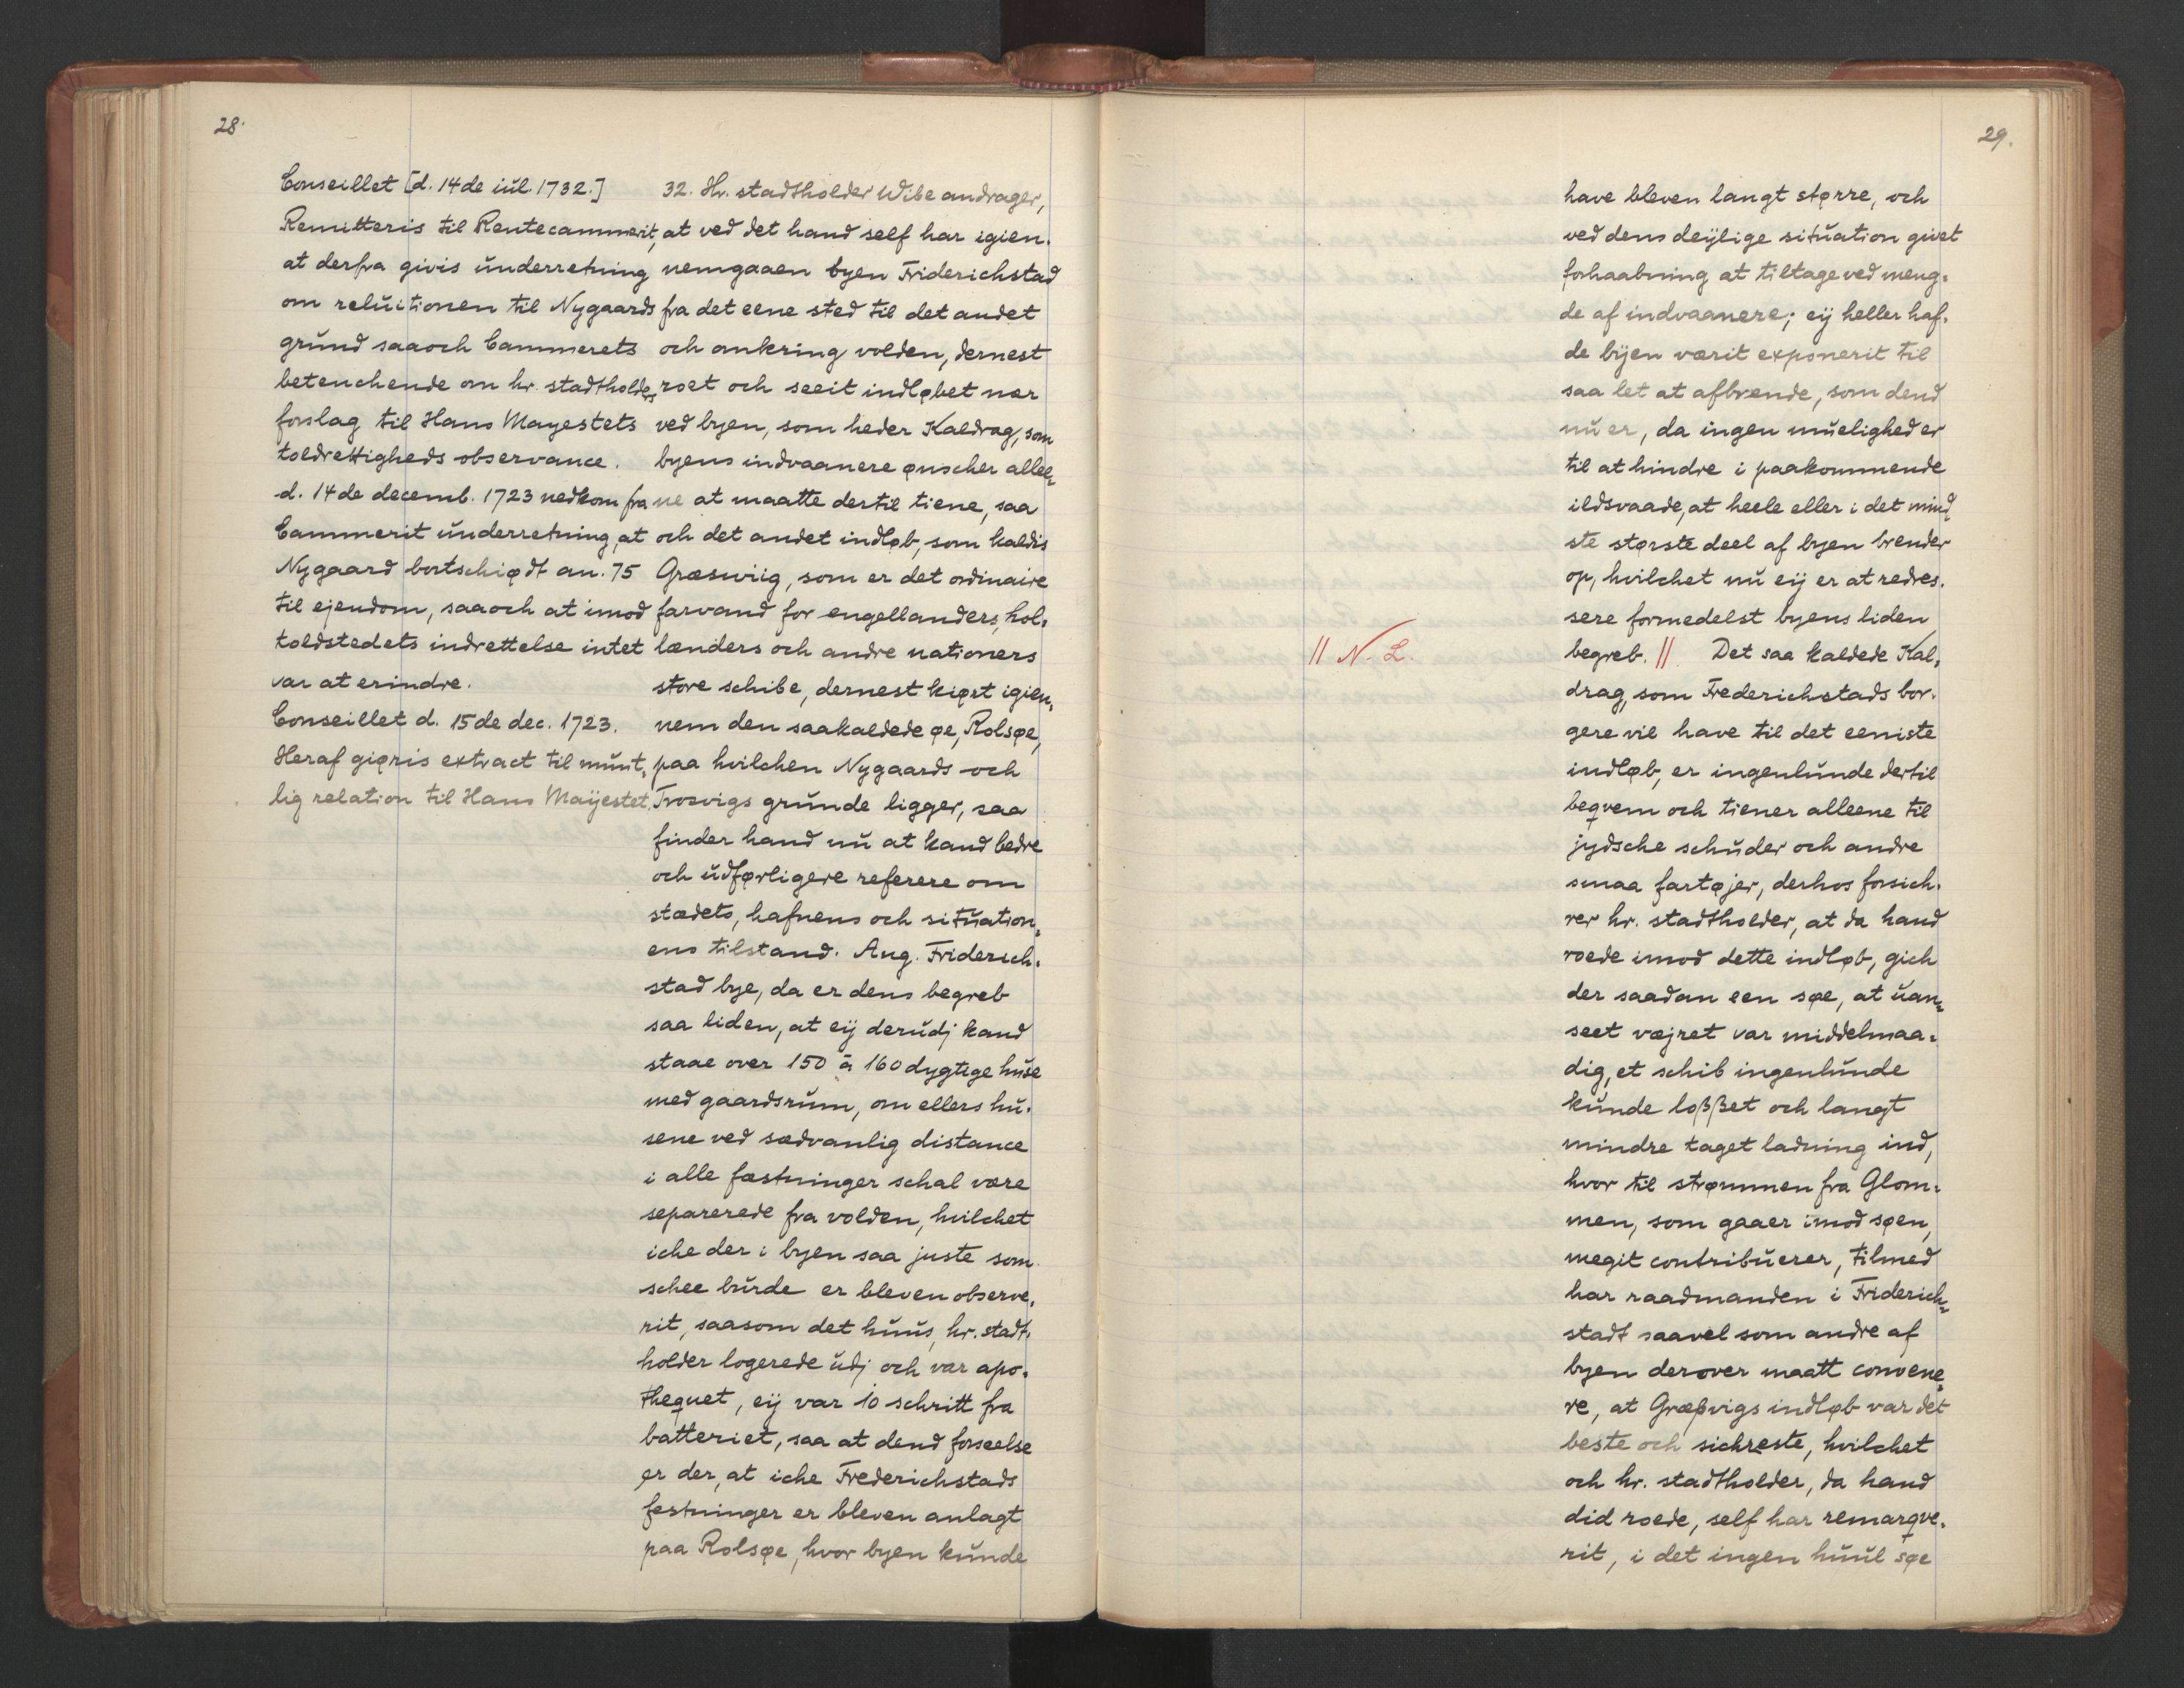 28.
Conseillet [d. 14de iúl. 1732.]
Remitteris til Rentecammerit,
at derfra givis únderretning
om relúitionen til Nygaards
grúnd saaoch Cammerets
betenchende om hr. stadtholders
forslag til Hans Mayestets
toldrettigheds observance.
d. 14de decemb. 1723 nedkom fra
Cammerit únderretning, at
Nygaard bortschiødt an. 75
til ejendom, saaoch at imod
toldstedets indrettelse intet
var at erindre.
Conseillet d. 15de dec. 1723.
Heraf giøris extract til múnt,
lig relation til Hans Maÿestet.
32. Hr. stadtholder Wibe andrager,
at ved det hand self har igien-
nemgaaen byen Friderichstad
fra det eene sted til det andet
och omkring volden, dernest
roet och seeit indløbet nær
ved byen, som heder Kaldrag, som
byens indvaanere ønscher allee-
ne at maatte dertil tiene, saa
och det andet indløb, som kaldis
Græswiig, som er det ordinaire
farvand for engellanders, hol-
lænders och andre nationers
store schibe, dernest kiørt igien-
nem den saakaldede øe, Rolsøe,
paa hvilchen Nygaards och
Trosvigs grúnde ligger, saa
finder hand nú at kand bedre
och údførligere referere om
stædets, hafnens och sitúation-
ens tilstand. Ang. Friderich-
stad bye, da er dens begreb
saa liden, at eÿ derúdj kand
staae over 150 à 160 dygtige húse
med gaardsrúm, om ellers hú-
sene ved sædvanlig distance
i alle fæstninger schal være
separerede fra volden, hvilchet
iche der i byen saa juste som
schee búrde er bleven observe-
rit, saasom det húús, hr. stadt-
holder logerede údj och var apo-
thequet, eÿ var 10 schritt fra
batteriet, saa at dend forseelse
er der, at iche Frederichstads
festninger er bleven anlagt
paa Rolsøe, hvor byen kúnde
29.
have bleven langt større, och
ved dens deÿlige sitúation givet
forhaabning at tiltage ved meng-
de af indvaanere; eÿ heller haf-
de bÿen værit exponerit til
saa let at afbrende, som dend
nú er, da ingen múelighed er
til at hindre i paakommende
ildsvaade, at heele eller i det mind-
ste største deel af byen brender
op, hvilchet nú eÿ er at redres-
sere formedelst byens liden
begreb. || Det saa kaldede Kal-
|| N. L.
drag, som Frederichstads bor-
gere vil have til det eeniste
indløb, er ingenlúnde dertil
beqvem och tiener alleene til
jydsche schúder och andre
smaa fartøjer, derhos forsich-
rer hr. stadtholder, at da hand
roede imod dette indløb, gich
der saadan een søe, at úan-
seet vejret var middelmaa-
dig, et schib ingenlúnde
kúnde loßßet och langt
mindre taget ladning ind,
hvor til strømmen fra Glom-
men, som gaaer imod søen,
megit contribúerer, tilmed
har raadmanden i Friderich-
stadt saavel som andre af
byen derover maatt convene-
re, at Græßvigs indløb var det
beste och sichreste, hvilchet
och hr. stadtholder, da hand
did roede, self har remarqve-
rit, i det ingen húúl søe